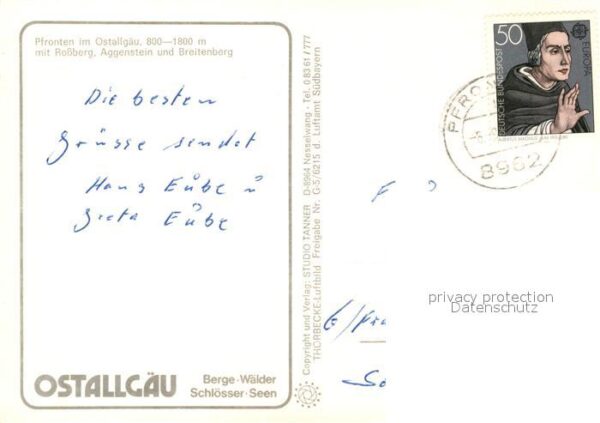 Pfronten im Ostallgäu, 800—1800 m
mit Roßberg, Aggenstein und Breitenberg
Die besten
Grüsse sendet
Hans Eübe u
Greta Eübe
OSTALLGÄU
Berge·Wälder
Schlösser·Seen
Copyright und Verlag: STUDIO TANNER D-8964 Nesselwang · Tel. 0 83 61 / 777
THORBECKE-Luftbild Freigabe Nr. G-5/6215 d. Luftamt Südbayern
50
DEUTSCHE BUNDESPOST
EUROPA
8962
privacy protection
Datenschutz